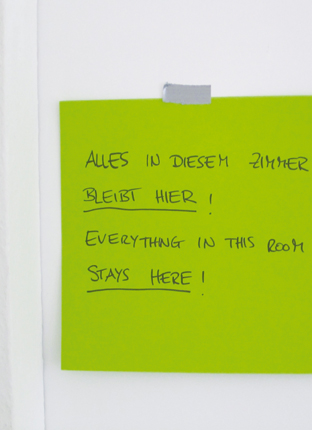 ALLES IN DIESEM ZIMMER
BLEIBT HIER !
EVERYTHING IN THIS ROOM
STAYS HERE !